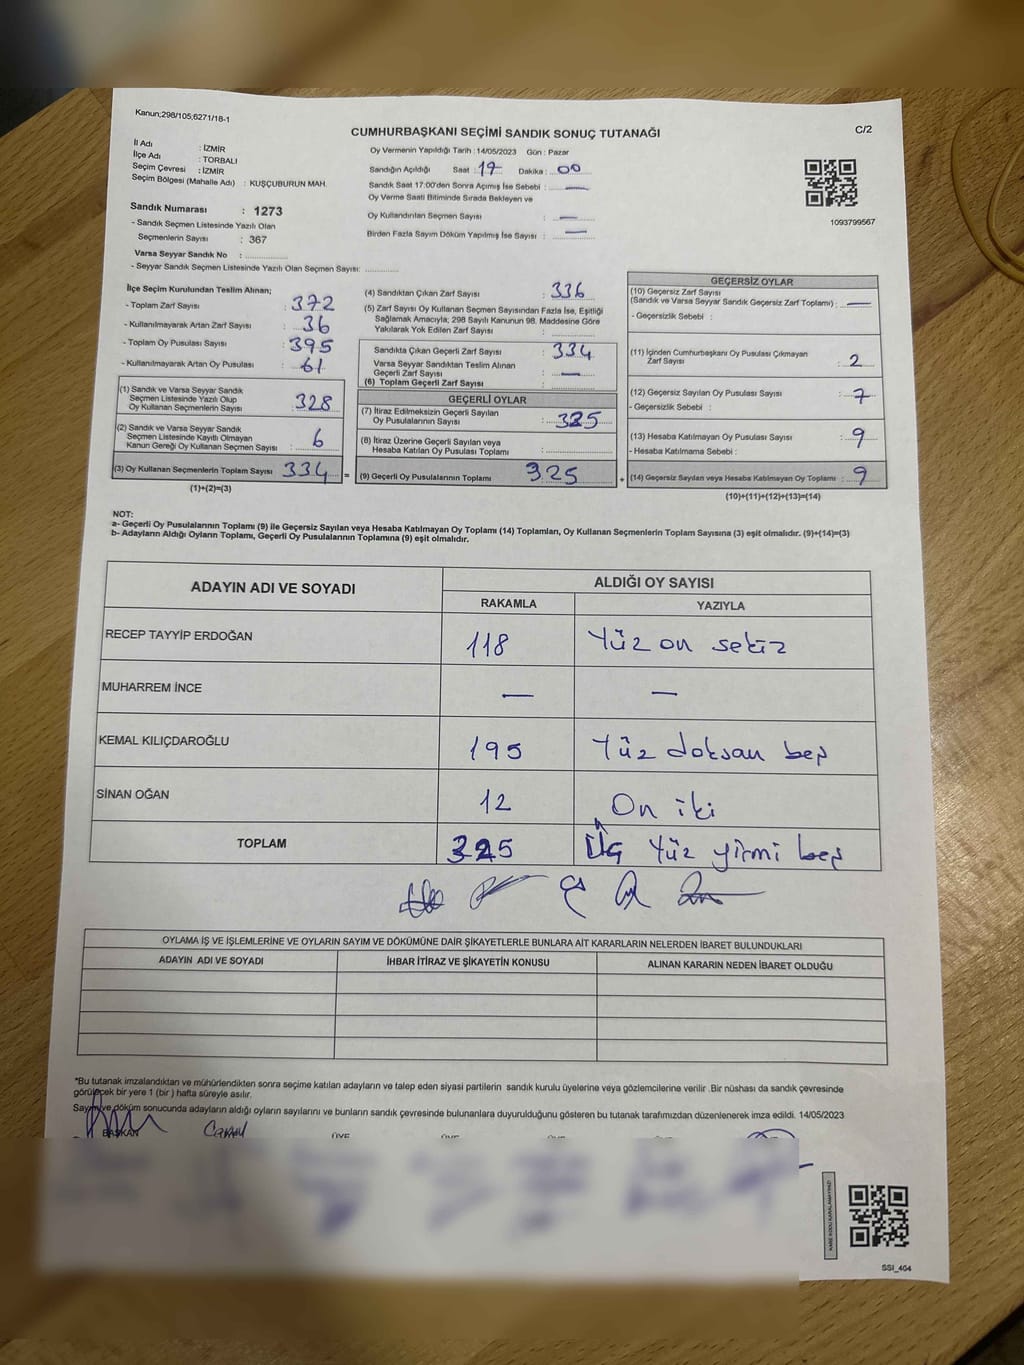 Kanun;298/105;6271/18-1
CUMHURBAŞKANI SEÇİMİ SANDIK SONUÇ TUTANAĞI
C/2
İl Adı : İZMİR
İlçe Adı : TORBALI
Seçim Çevresi : İZMİR
Seçim Bölgesi (Mahalle Adı) : KUŞÇUBURUN MAH.
Sandık Numarası : 1273
- Sandık Seçmen Listesinde Yazılı Olan
Seçmenlerin Sayısı : 367
Varsa Seyyar Sandık No :
- Seyyar Sandık Seçmen Listesinde Yazılı Olan Seçmen Sayısı:
Oy Vermenin Yapıldığı Tarih : 14/05/2023 Gün : Pazar
Sandığın Açıldığı Saat : 17 Dakika : 00
Sandık Saat 17:00'den Sonra Açılmış İse Sebebi : —
Oy Verme Saati Bitiminde Sırada Bekleyen ve
Oy Kullandırılan Seçmen Sayısı : —
Birden Fazla Sayım Döküm Yapılmış İse Sayısı : —
1093799567
İlçe Seçim Kurulundan Teslim Alınan;
- Toplam Zarf Sayısı : 372
- Kullanılmayarak Artan Zarf Sayısı : 36
- Toplam Oy Pusulası Sayısı : 395
- Kullanılmayarak Artan Oy Pusulası : 61
(1) Sandık ve Varsa Seyyar Sandık
Seçmen Listesinde Yazılı Olup
Oy Kullanan Seçmenlerin Sayısı : 328
(2) Sandık ve Varsa Seyyar Sandık
Seçmen Listesinde Kayıtlı Olmayan
Kanun Gereği Oy Kullanan Seçmen Sayısı : 6
(3) Oy Kullanan Seçmenlerin Toplam Sayısı : 334 =
(1)+(2)=(3)
(4) Sandıktan Çıkan Zarf Sayısı : 336
(5) Zarf Sayısı Oy Kullanan Seçmen Sayısından Fazla İse, Eşitliği
Sağlamak Amacıyla; 298 Sayılı Kanunun 98. Maddesine Göre
Yakılarak Yok Edilen Zarf Sayısı :
Sandıkta Çıkan Geçerli Zarf Sayısı : 334
Varsa Seyyar Sandıktan Teslim Alınan
Geçerli Zarf Sayısı : —
(6) Toplam Geçerli Zarf Sayısı :
GEÇERLİ OYLAR
(7) İtiraz Edilmeksizin Geçerli Sayılan
Oy Pusulalarının Sayısı : 325
(8) İtiraz Üzerine Geçerli Sayılan veya
Hesaba Katılan Oy Pusulası Toplamı :
(9) Geçerli Oy Pusulalarının Toplamı : 325 +
GEÇERSİZ OYLAR
(10) Geçersiz Zarf Sayısı
(Sandık ve Varsa Seyyar Sandık Geçersiz Zarf Toplamı) : —
- Geçersizlik Sebebi :
(11) İçinden Cumhurbaşkanı Oy Pusulası Çıkmayan
Zarf Sayısı : 2
(12) Geçersiz Sayılan Oy Pusulası Sayısı : 7
- Geçersizlik Sebebi :
(13) Hesaba Katılmayan Oy Pusulası Sayısı : 9
- Hesaba Katılmama Sebebi :
(14) Geçersiz Sayılan veya Hesaba Katılmayan Oy Toplamı : 9
(10)+(11)+(12)+(13)=(14)
NOT:
a- Geçerli Oy Pusulalarının Toplamı (9) ile Geçersiz Sayılan veya Hesaba Katılmayan Oy Toplamı (14) Toplamları, Oy Kullanan Seçmenlerin Toplam Sayısına (3) eşit olmalıdır. (9)+(14)=(3)
b- Adayların Aldığı Oyların Toplamı, Geçerli Oy Pusulalarının Toplamına (9) eşit olmalıdır.
ADAYIN ADI VE SOYADI ALDIĞI OY SAYISI
RAKAMLA YAZIYLA
RECEP TAYYİP ERDOĞAN 118 Yüz on sekiz
MUHARREM İNCE — —
KEMAL KILIÇDAROĞLU 195 Yüz doksan beş
SİNAN OĞAN 12 On iki
TOPLAM 325 Üç Yüz yirmi beş
OYLAMA İŞ VE İŞLEMLERİNE VE OYLARIN SAYIM VE DÖKÜMÜNE DAİR ŞİKAYETLERLE BUNLARA AİT KARARLARIN NELERDEN İBARET BULUNDUKLARI
ADAYIN ADI VE SOYADI İHBAR İTİRAZ VE ŞİKAYETİN KONUSU ALINAN KARARIN NEDEN İBARET OLDUĞU
*Bu tutanak imzalandıktan ve mühürlendikten sonra seçime katılan adayların ve talep eden siyasi partilerin sandık kurulu üyelerine veya gözlemcilerine verilir .Bir nüshası da sandık çevresinde
görülecek bir yere 1 (bir ) hafta süreyle asılır.
Sayım ve döküm sonucunda adayların aldığı oyların sayılarını ve bunların sandık çevresinde bulunanlara duyurulduğunu gösteren bu tutanak tarafımızdan düzenlenerek imza edildi. 14/05/2023
BAŞKAN
ÜYE
SSI_404